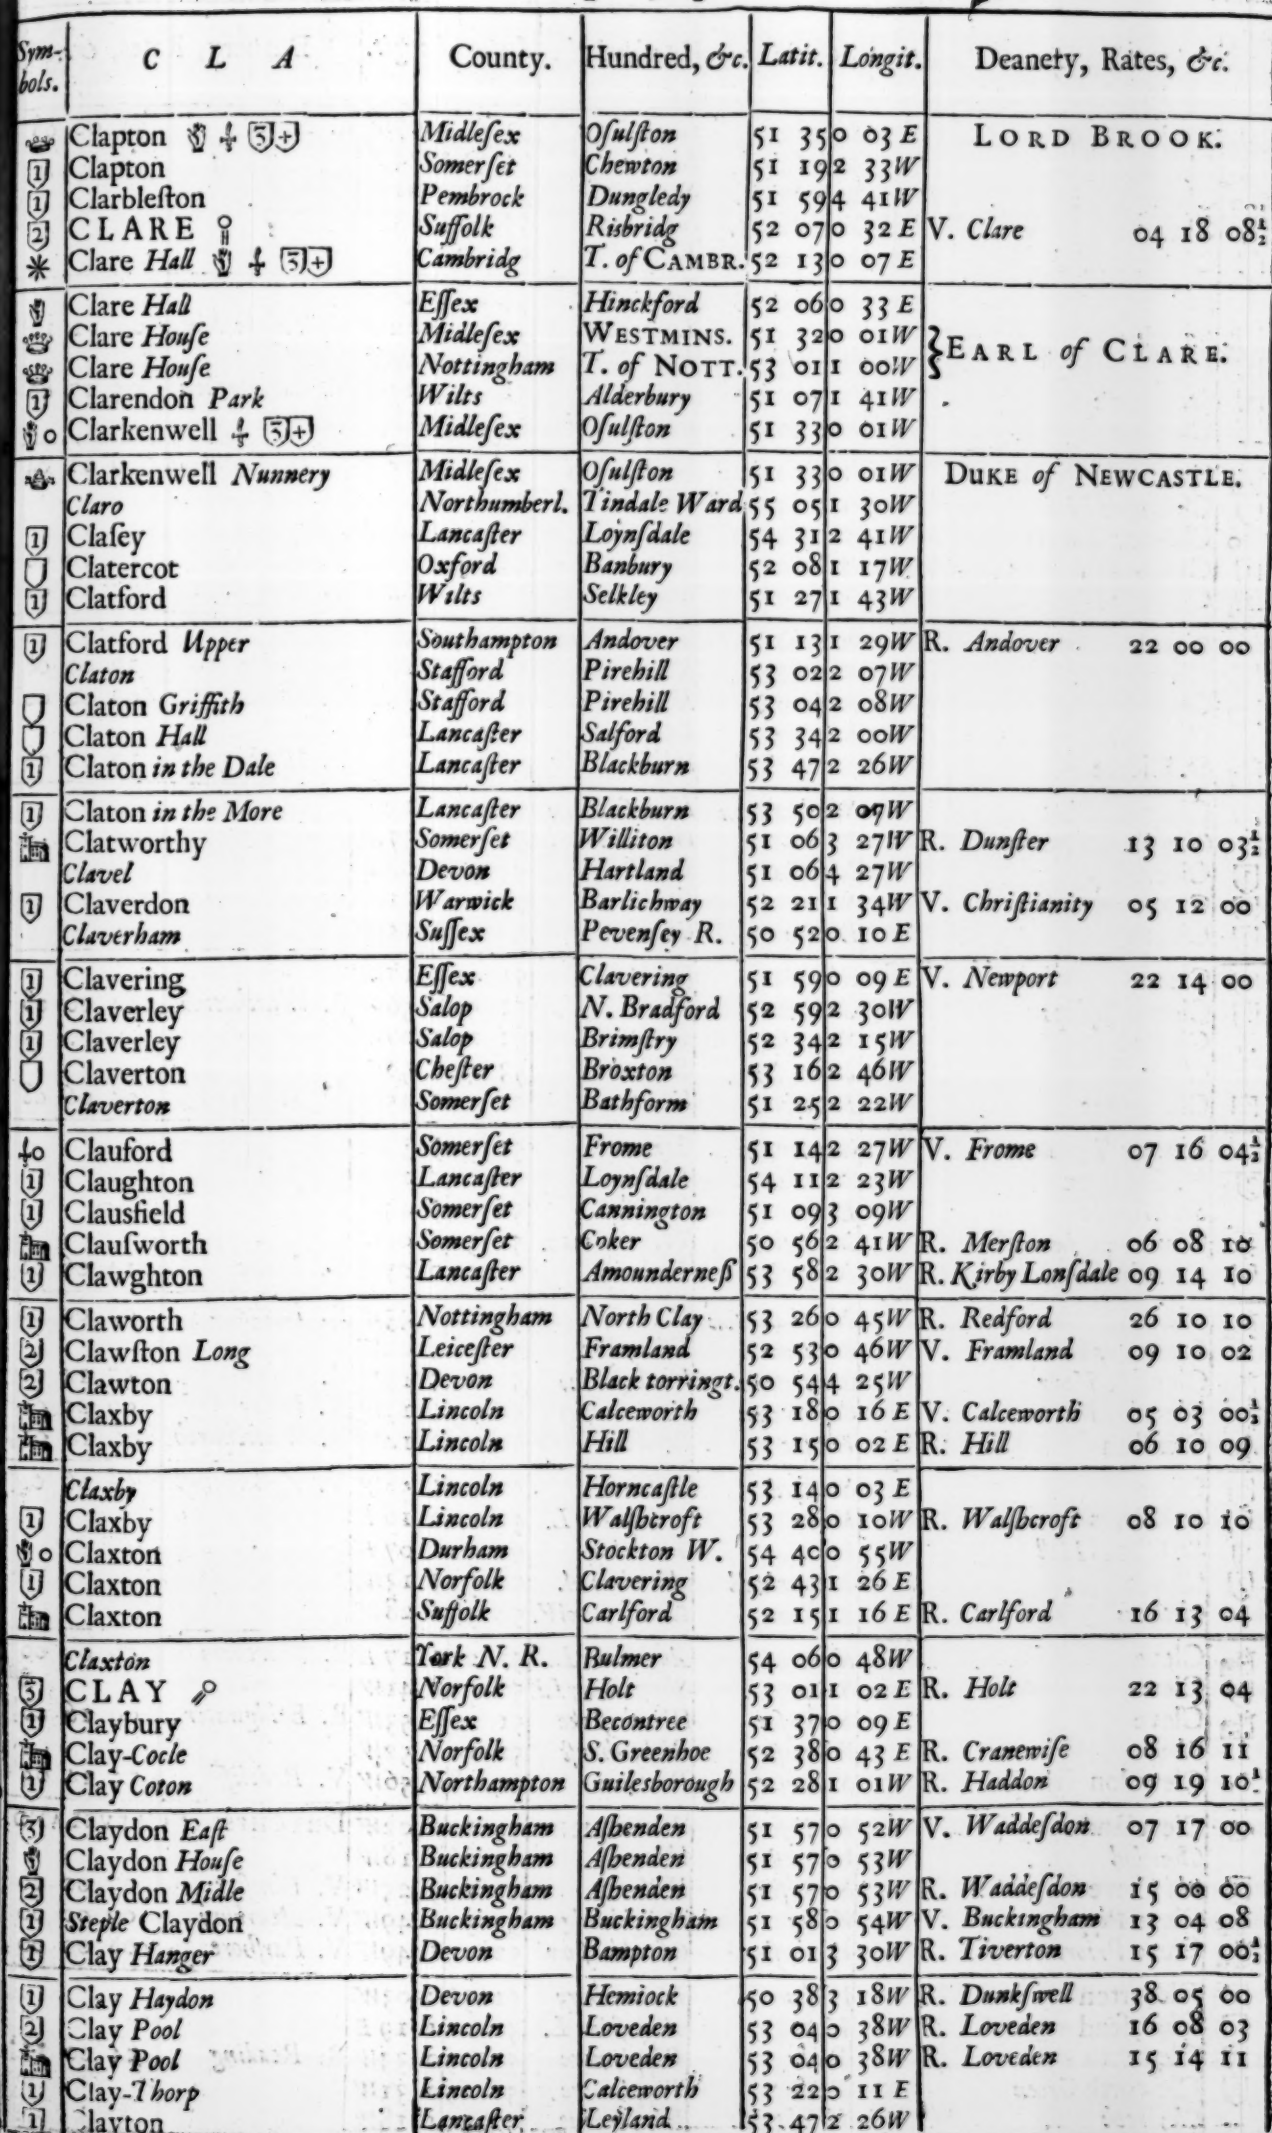 Sym-bols. C L A County. Hundred, &c. Latit. Longit. Deanery, Rates, &c.
Clapton 3 + Midleſex Oſulſton 51 35 0 03 E LORD BROOK.
1 Clapton Somerſet Chewton 51 19 2 33 W
1 Clarbleſton Pembrock Dungledy 51 59 4 41 W
2 CLARE Suffolk Risbridg 52 07 0 32 E V. Clare 04 18 08½
Clare Hall 3 + Cambridg T. of CAMBR. 52 13 0 07 E
Clare Hall Eſſex Hinckford 52 06 0 33 E
Clare Houſe Midleſex WESTMINS. 51 32 0 01 W } EARL of CLARE.
Clare Houſe Nottingham T. of NOTT. 53 01 1 00 W
1 Clarendon Park Wilts Alderbury 51 07 1 41 W
Clarkenwell 3 + Midleſex Oſulſton 51 33 0 01 W
Clarkenwell Nunnery Midleſex Oſulſton 51 33 0 01 W DUKE of NEWCASTLE.
Claro Northumberl. Tindale Ward 55 05 1 30 W
1 Claſey Lancaſter Loynſdale 54 31 2 41 W
Clatercot Oxford Banbury 52 08 1 17 W
1 Clatford Wilts Selkley 51 27 1 43 W
1 Clatford Upper Southampton Andover 51 13 1 29 W R. Andover 22 00 00
Claton Stafford Pirehill 53 02 2 07 W
Claton Griffith Stafford Pirehill 53 04 2 08 W
Claton Hall Lancaſter Salford 53 34 2 00 W
1 Claton in the Dale Lancaſter Blackburn 53 47 2 26 W
1 Claton in the More Lancaſter Blackburn 53 50 2 07 W
Clatworthy Somerſet Williton 51 06 3 27 W R. Dunſter 13 10 03½
Clavel Devon Hartland 51 06 4 27 W
1 Claverdon Warwick Barlichway 52 21 1 34 W V. Chriſtianity 05 12 00
Claverham Suſſex Pevenſey R. 50 52 0 10 E
1 Clavering Eſſex Clavering 51 59 0 09 E V. Newport 22 14 00
1 Claverley Salop N. Bradford 52 59 2 30 W
1 Claverley Salop Brimſtry 52 34 2 15 W
Claverton Cheſter Broxton 53 16 2 46 W
Claverton Somerſet Bathform 51 25 2 22 W
Clauford Somerſet Frome 51 14 2 27 W V. Frome 07 16 04½
1 Claughton Lancaſter Loynſdale 54 11 2 23 W
1 Clausfield Somerſet Cannington 51 09 3 09 W
Clauſworth Somerſet Coker 50 56 2 41 W R. Merſton 06 08 10
1 Clawghton Lancaſter Amounderneß 53 58 2 30 W R. Kirby Lonſdale 09 14 10
1 Claworth Nottingham North Clay 53 26 0 45 W R. Redford 26 10 10
2 Clawſton Long Leiceſter Framland 52 53 0 46 W V. Framland 09 10 02
2 Clawton Devon Black torringt. 50 54 4 25 W
Claxby Lincoln Calceworth 53 18 0 16 E V. Calceworth 05 03 00½
Claxby Lincoln Hill 53 15 0 02 E R. Hill 06 10 09
Claxby Lincoln Horncaſtle 53 14 0 03 E
1 Claxby Lincoln Walſhcroft 53 28 0 10 W R. Walſhcroft 08 10 10
Claxton Durham Stockton W. 54 40 0 55 W
1 Claxton Norfolk Clavering 52 43 1 26 E
Claxton Suffolk Carlford 52 15 1 16 E R. Carlford 16 13 04
Claxton York N. R. Bulmer 54 06 0 48 W
3 CLAY Norfolk Holt 53 01 1 02 E R. Holt 22 13 04
1 Claybury Eſſex Becontree 51 37 0 09 E
Clay-Cocle Norfolk S. Greenhoe 52 38 0 43 E R. Cranewiſe 08 16 11
1 Clay Coton Northampton Guilesborough 52 28 1 01 W R. Haddon 09 19 10½
3 Claydon Eaſt Buckingham Aſhenden 51 57 0 52 W V. Waddeſdon 07 17 00
Claydon Houſe Buckingham Aſhenden 51 57 0 53 W
2 Claydon Midle Buckingham Aſhenden 51 57 0 53 W R. Waddeſdon 15 00 00
1 Steple Claydon Buckingham Buckingham 51 58 0 54 W V. Buckingham 13 04 08
1 Clay Hanger Devon Bampton 51 01 3 30 W R. Tiverton 15 17 00½
1 Clay Haydon Devon Hemiock 50 38 3 18 W R. Dunkſwell 38 05 00
2 Clay Pool Lincoln Loveden 53 04 0 38 W R. Loveden 16 08 03
Clay Pool Lincoln Loveden 53 04 0 38 W R. Loveden 15 14 11
1 Clay-Thorp Lincoln Calceworth 53 22 0 11 E
1 Clayton Lancaſter Leyland 53 47 2 26 W